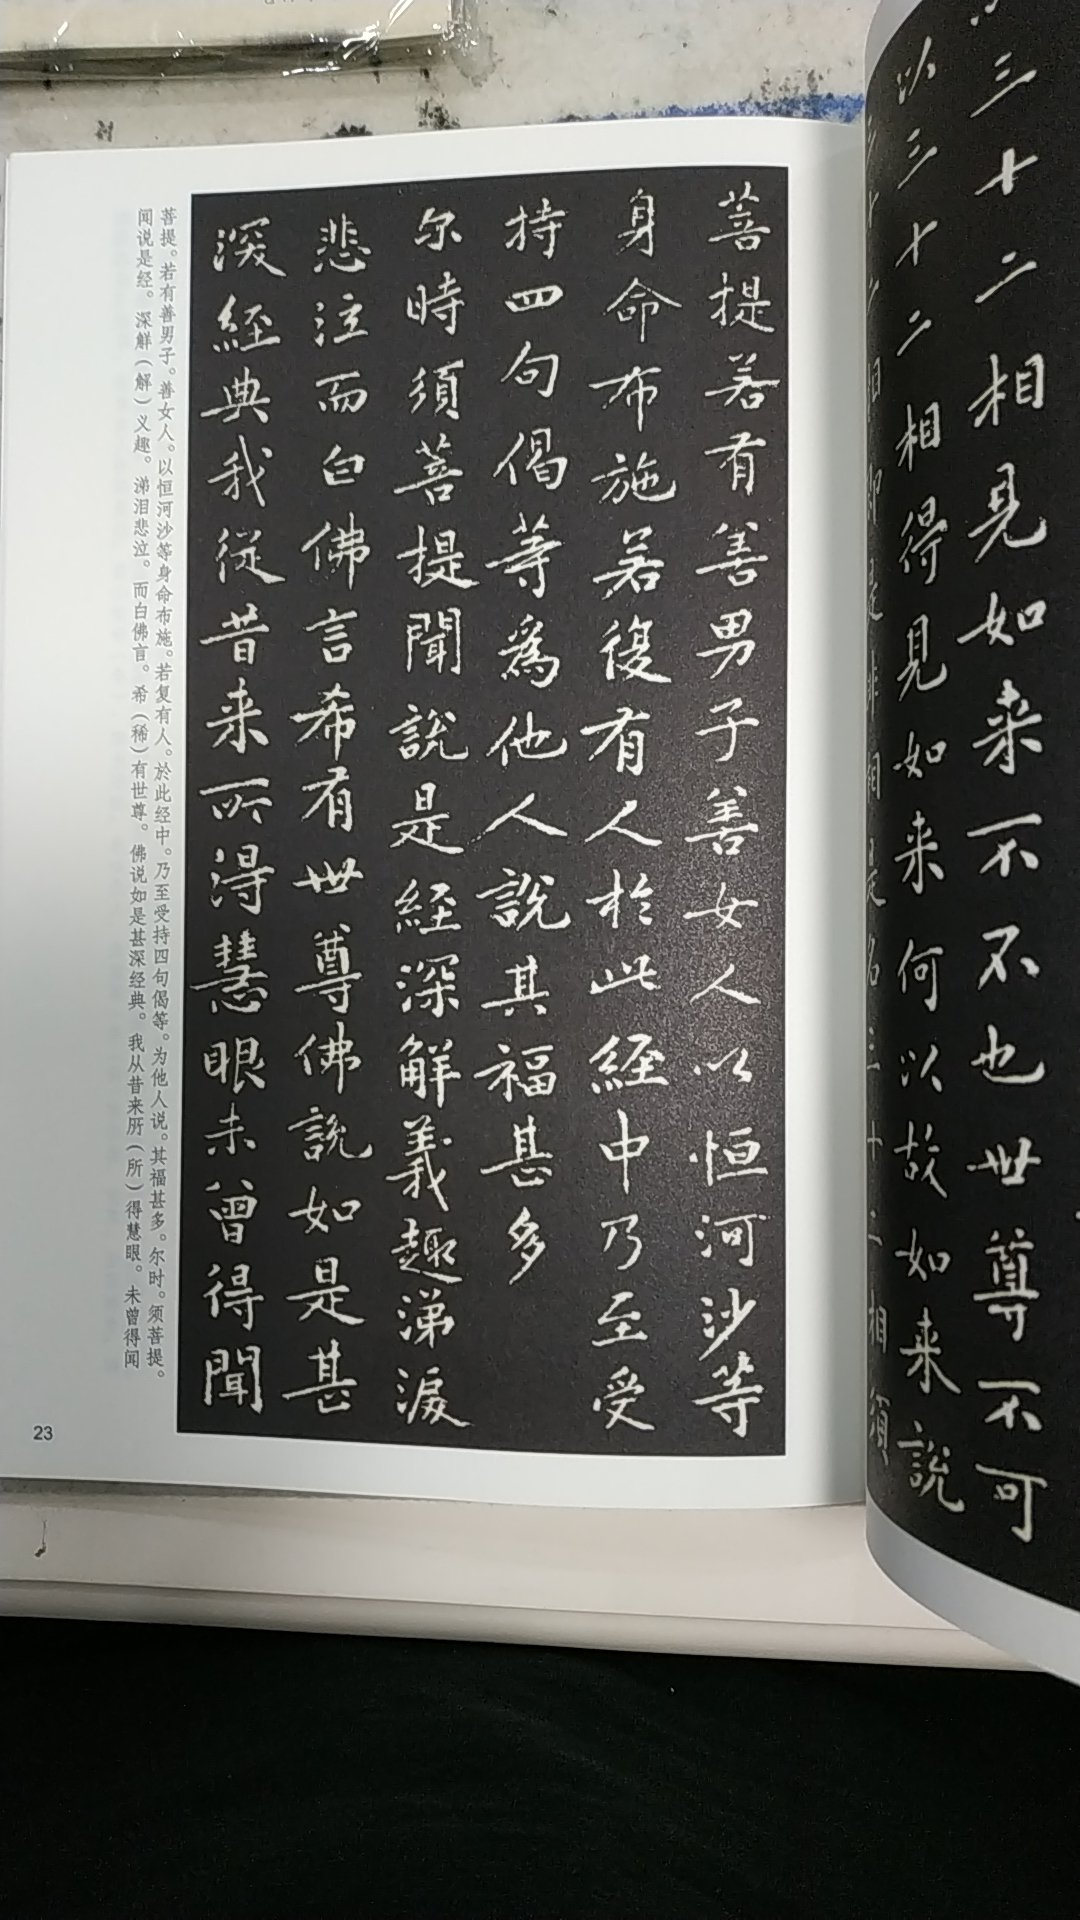 三十二相見如来不不也世尊不可
以三十二相得見如来何以故如来說
相即是非相是名三十二相須
菩提若有善男子善女人以恒河沙等
身命布施若復有人於此經中乃至受
持四句偈等為他人說其福甚多
尔時須菩提聞說是經深解義趣涕淚
悲泣而白佛言希有世尊佛說如是甚
深經典我從昔来所得慧眼未曾得聞
菩提。若有善男子。善女人。以恒河沙等身命布施。若复有人。於此经中。乃至受持四句偈等。为他人说。其福甚多。尔时。须菩提。
闻说是经。深觧（解）义趣。涕泪悲泣。而白佛言。希（稀）有世尊。佛说如是甚深经典。我从昔来所（所）得慧眼。未曾得闻
23